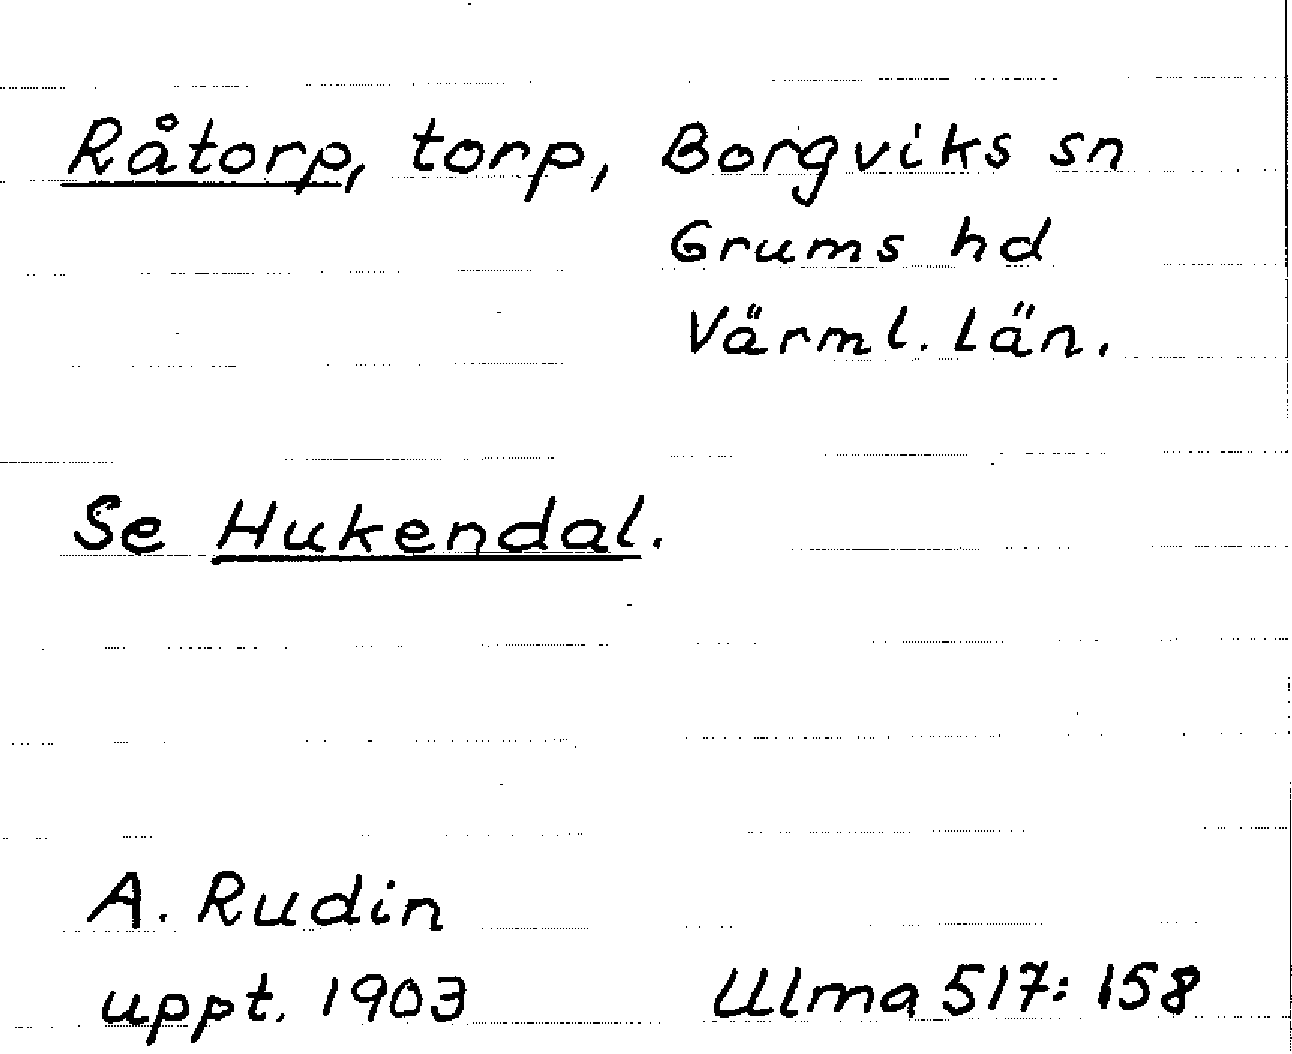 Råtorp, torp, Borgviks sn
Grums hd
Värml. län.
Se Hukendal.
A. Rudin
uppt. 1903
Ulma 517:158